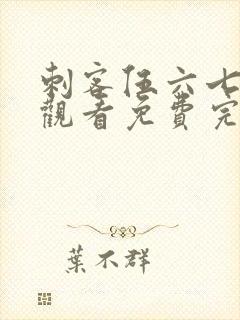 刺客伍六七
觀看免費完
葉不群